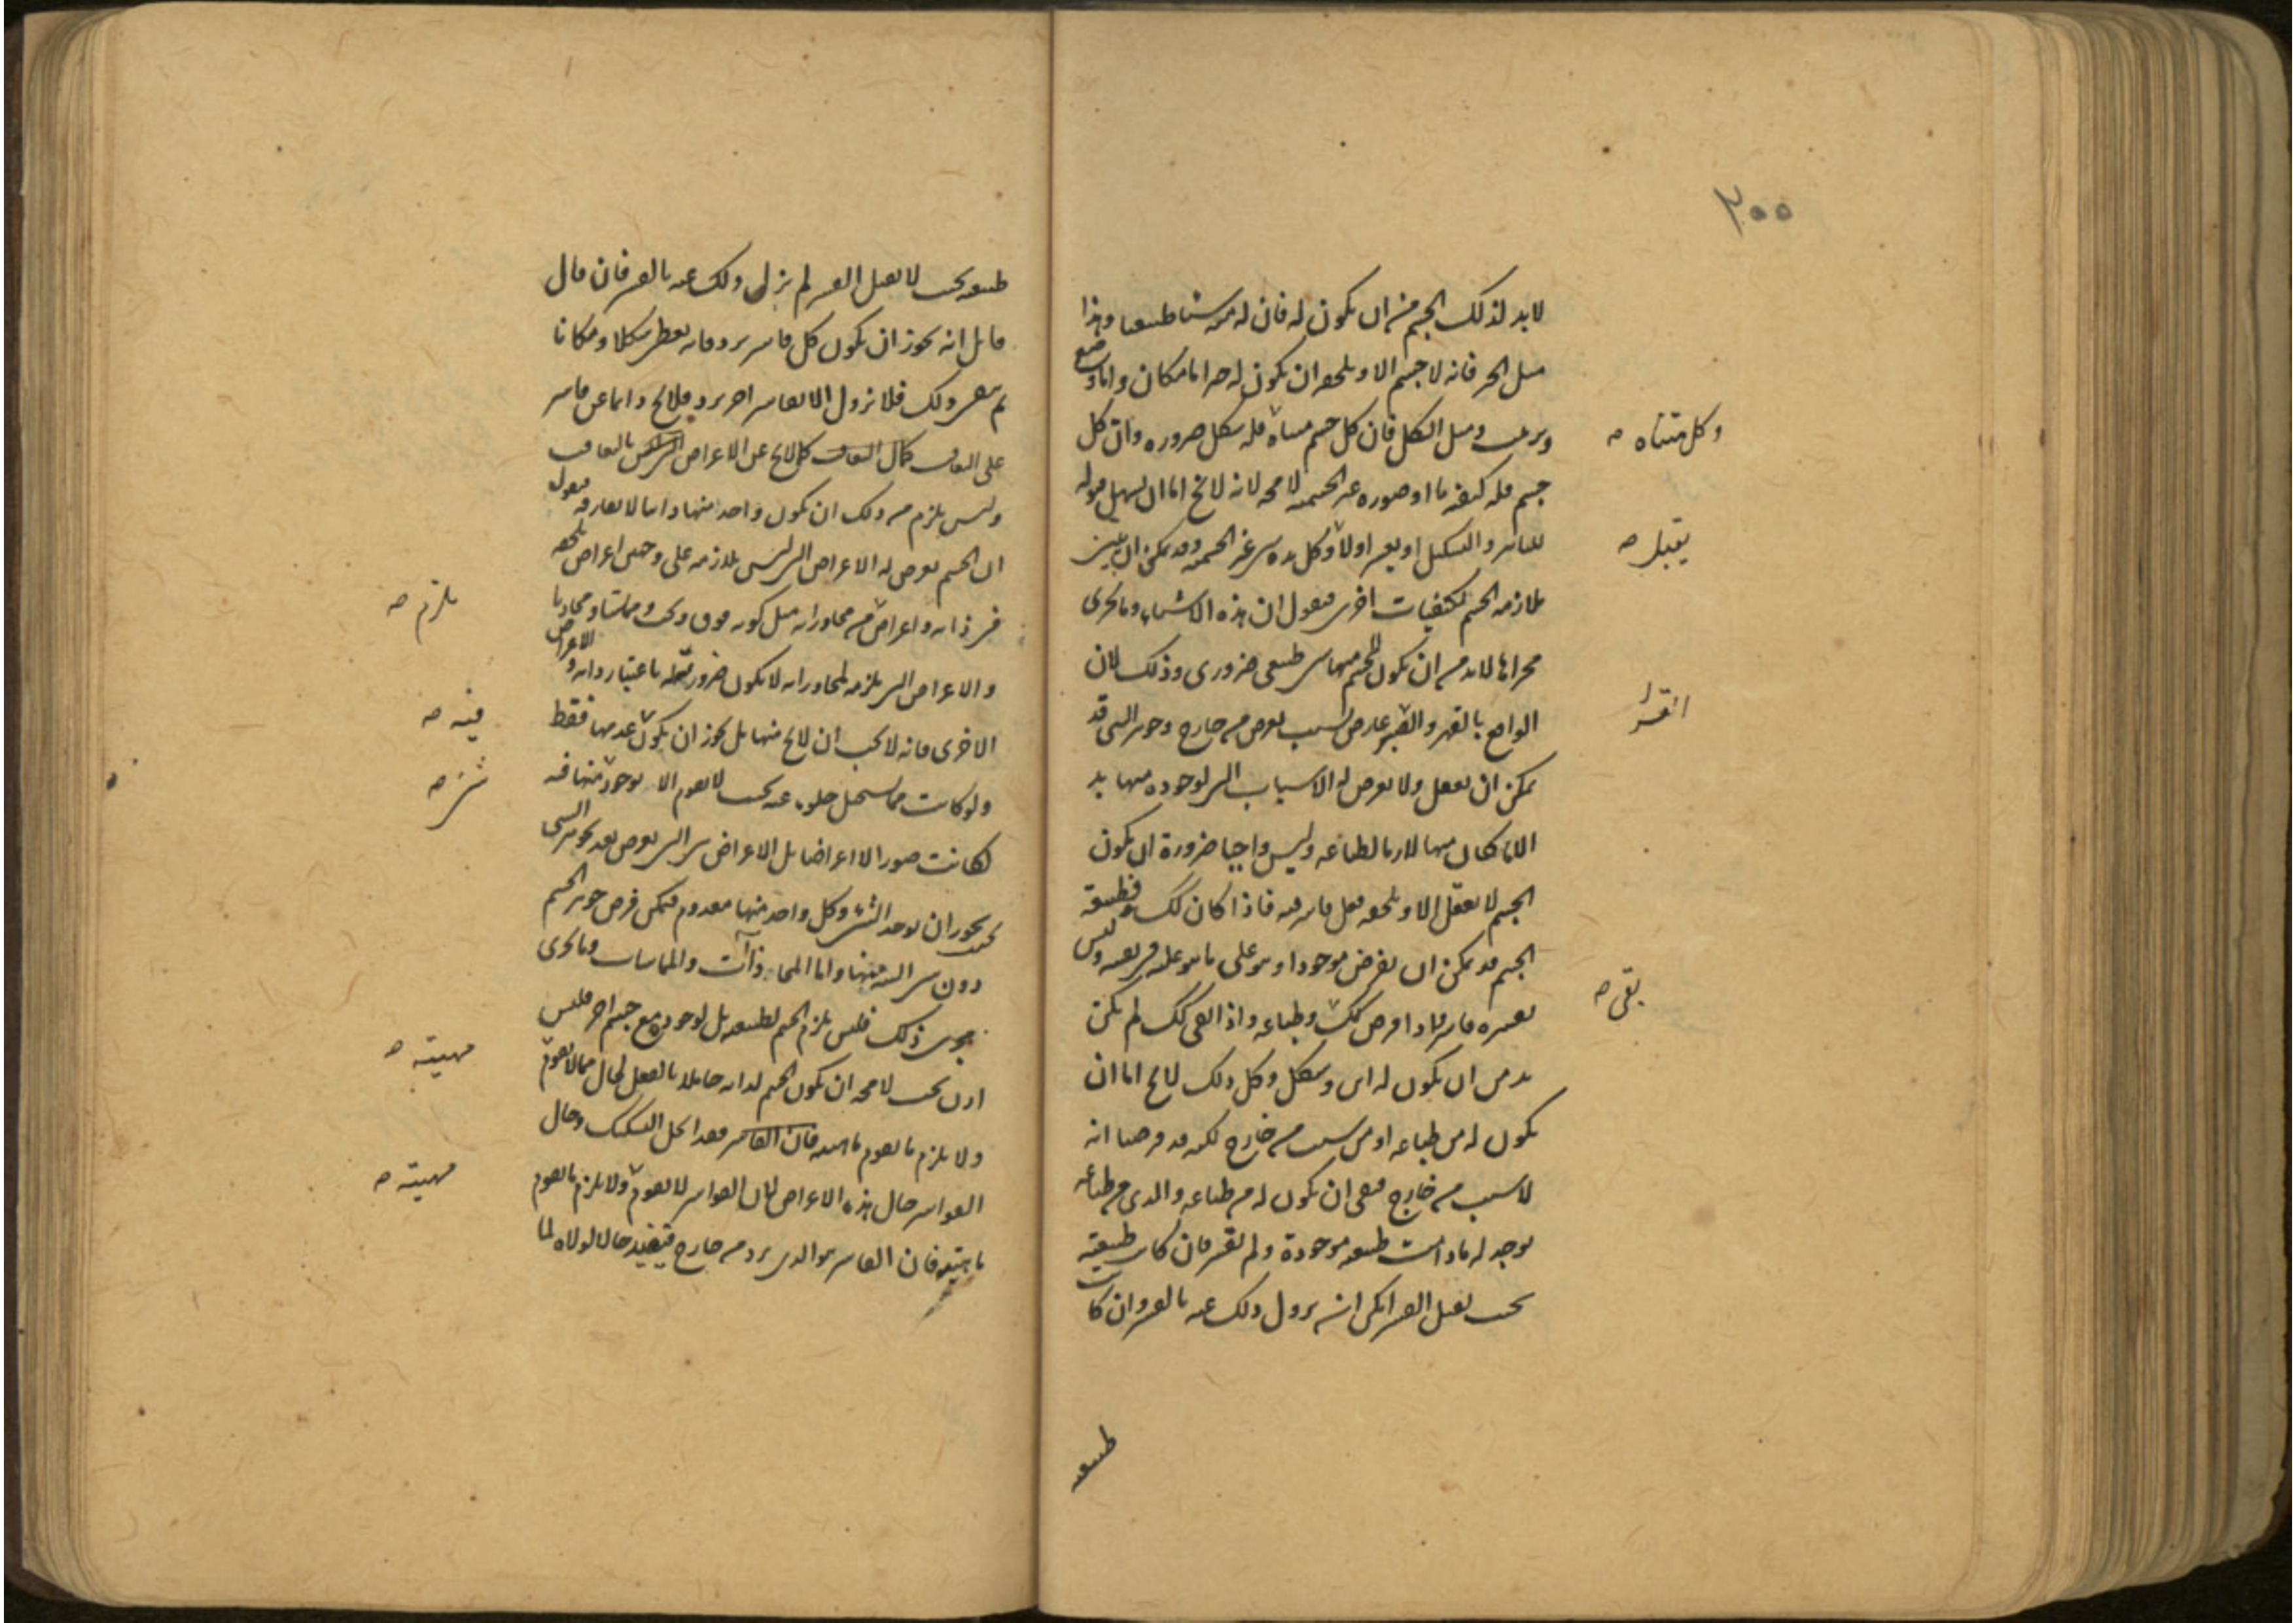 ٣٠٠
لابد لذلك الجسم من ان يكون له فان له منه شيئا طبيعيا وهذا
مثل الحيز فانه لا جسم الا ويلحقه ان يكون له حيز اما مكان واما وضع
وترتيب ومثل الشكل فان كل جسم متناه فله شكل ضرورة وان كل
وكل متناه صه
جسم فله كيفية ما او صورة غير الجسمية لا محة لانه لا يخ اما ان يسهل قبوله
للتاثير والتشكيل او يعسر اولا وكل هذه شي غير الجسمية وقد يمكن ان يبين
يقبل صه
ملازمة الجسم لكيفيات اخرى فنقول ان هذه الاشياء وما يجرى
مجراها لابد من ان يكون للجسم منها شي طبيعي ضروري وذلك لان
الواقع بالقهر والقسر عارض بسبب يعرض من خارج وجوهر الشي قد
يمكن ان يعقل ولا يعرض له الاسباب التي لوجوده منها بد
الا ما كان منها لازما لطباعه وليس واجبا ضرورة ان يكون
الجسم لا يعقل الا ويلحقه فعل قاسر فيه فاذا كان كك فطبيعة
الجسم قد يمكن ان يفرض موجودا وهو على ما هو عليه في نفسه وليس
يقسره قاسر فاذا فرض كك وطباعه واذا كك لم يكن
بقى صه
بد من ان يكون له اين وشكل وكل ذلك لا يخ اما ان
يكون له من طباعه او من سبب من خارج لكنه قد فرضنا انه
لا سبب من خارج فبقى ان يكون له من طباعه والذى من طباعه
يوجد له ما دامت طبيعته موجودة ولم يقسر فان كانت طبيعته
بحيث يقبل القسر امكن ان يزول ذلك عنه بالقسر وان كانت
طبيعته
طبيعته بحيث لا يقبل القسر لم يزل ذلك عنه بالقسر فان قال
قائل انه يجوز ان يكون كل قاسر يرد فانه يعطى شكلا ومكانا
ثم يبقى ذلك فلا يزول الا بقاسر اخر يرد فلا يخ دائما عن قاسر
على التعاقب كما لا يخ عن الاعراض بالتعاقب
وليس يلزم من ذلك ان يكون واحد منها دائما لا يفارقه فنقول
ان الجسم يعرض له الاعراض التي ليس يلازمه على وجهين اعراض تلحقه
في ذاته واعراض من مجاوراته مثل كونه فوق وتحت ومماسا ومحاذيا
يلزم صه
والاعراض التي تلزمه لمجاوراته لا يكون ضرورية له باعتبار ذاته والاعراض
الاخرى فانه لا يجب ان لا يخ منها بل يجوز ان يكون عدمها فقط
فيه صه
ولو كانت مما يستحيل خلوه عنه بحيث لا يقوم الا بوجود منها فيه
لكانت صورا لا اعراضا بل الاعراض هي التي يعرض بعد تجوهر الشي
بحيث يجوز ان يوجد الشي وكل واحد منها معدوم فيمكن فرض جوهر الجسم
دون شي البتة منها واما المحاذات والمماسات وما يجرى
مجرى ذلك فليس يلزم الجسم لطبيعته بل لوجوده مع جسم اخر فليس
اذن يجب لا محة ان يكون الجسم لذاته حاملا بالفعل لحال مما لا يقوم
مهيته صه
ولا يلزم ما يقوم ماهيته فقد انحل التشكك وحال
القواسر حال هذه الاعراض لان القواسر لا يقوم ولا يلزم ما يقوم
مهيته صه
ماهيته فان القاسر هو الذى يرد من خارج فيفيد حالا لولاه لما